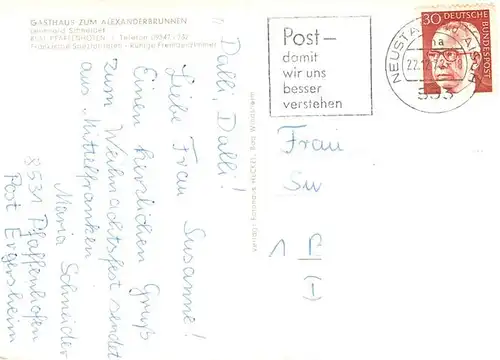 GASTHAUS ZUM ALEXANDERBRUNNEN
Schneider
8531 PFAFFENHOFEN / Telefon 09847-
Fränkische Spezialitäten - Ruhige Fremdenzimmer
"Dalli, Dalli!
Liebe Frau Susanne!
Einen herzlichen Gruß
zum Weihnachtsfest sendet
aus Mittelfranken
Maria Schneider
8531 Pfaffenhofen
Post Ergersheim
Verlags Fotohaus HECKEL, Bad Windsheim
Post—
damit
wir uns
besser
verstehen
NEUSTADT
AISCH
na
22.12.72
853
30
DEUTSCHE
BUNDESPOST
Frau
Su
1 B
(-)